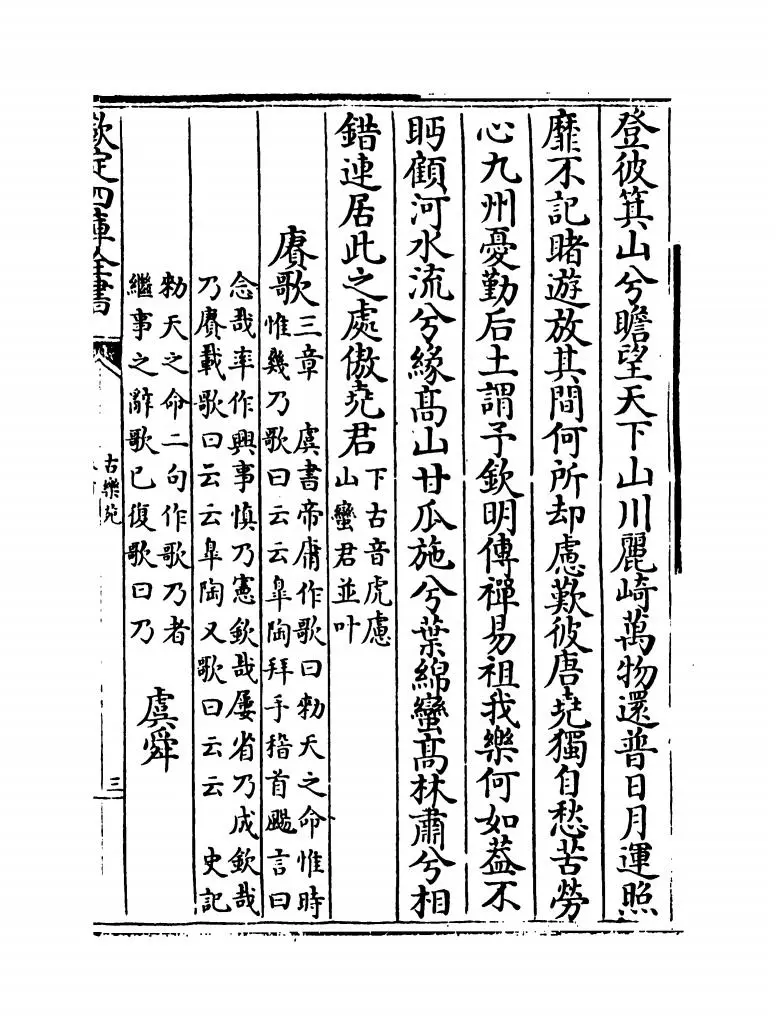 登彼箕山兮瞻望天下山川麗崎萬物還普日月運照
靡不記睹遊放其間何所却慮歎彼唐堯獨自愁苦勞
心九州憂勤后土謂予欽明傳禪易祖我樂何如葢不
眄顧河水流兮緣髙山甘瓜施兮葉綿蠻髙林肅兮相
錯連居此之處傲堯君
下古音虎慮
山蠻君並叶
賡歌
三章 虞書帝庸作歌曰勑天之命惟時
惟幾乃歌曰云云臯陶拜手稽首颺言曰
念哉率作興事慎乃憲欽哉屢省乃成欽哉
乃賡載歌曰云云臯陶又歌曰云云 史記
勑天之命二句作歌乃者
繼事之辭歌已復歌曰乃
虞舜
欽定四庫全書
古樂苑
三